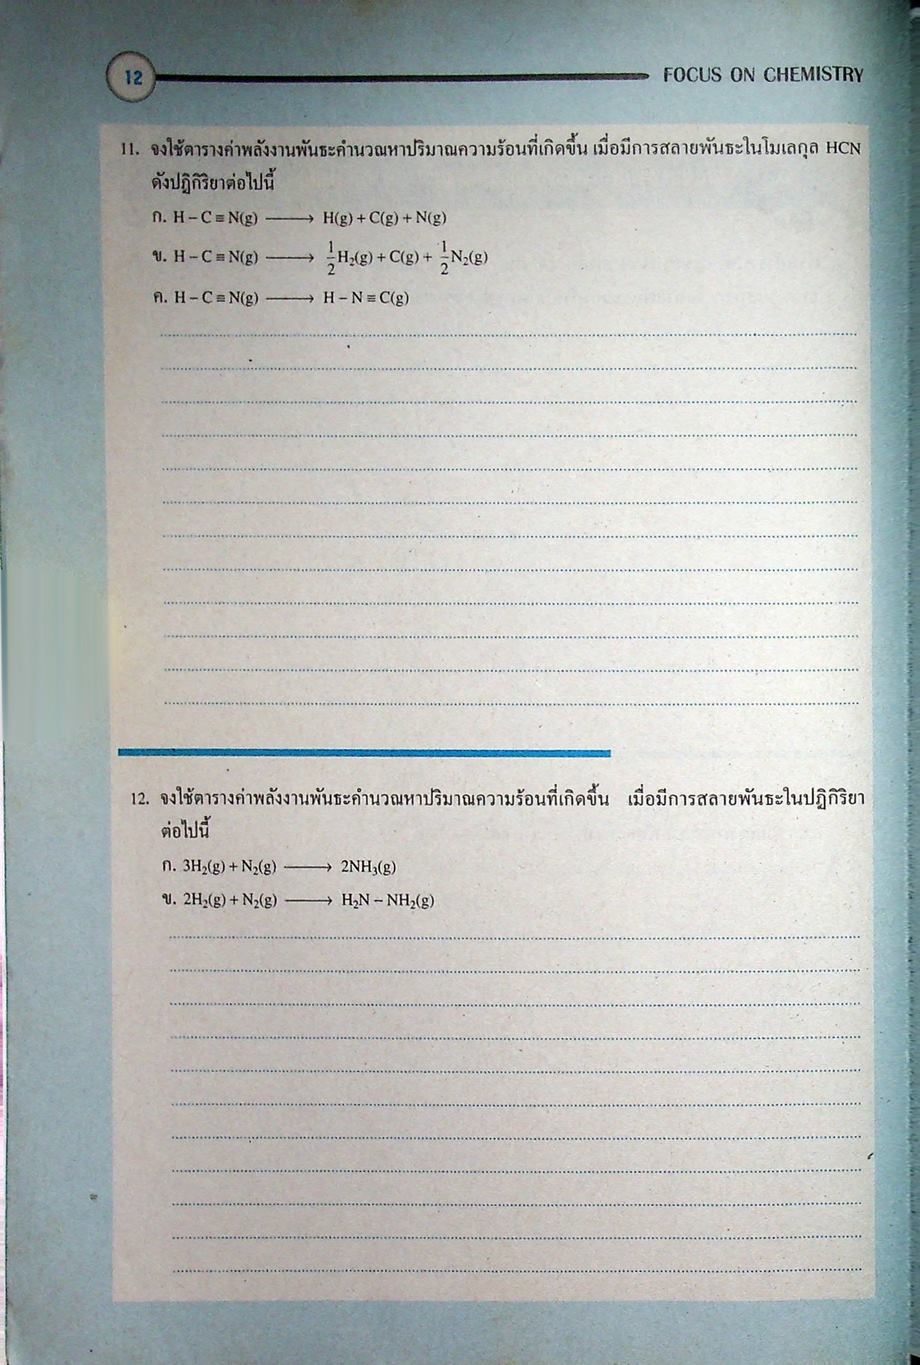 12 FOCUS ON CHEMISTRY
11. จงใช้ตารางค่าพลังงานพันธะคำนวณหาปริมาณความร้อนที่เกิดขึ้น เมื่อมีการสลายพันธะในโมเลกุล HCN
ดังปฏิกิริยาต่อไปนี้
ก. H – C ≡ N(g) ⟶ H(g) + C(g) + N(g)
ข. H – C ≡ N(g) ⟶ 1/2 H₂(g) + C(g) + 1/2 N₂(g)
ค. H – C ≡ N(g) ⟶ H – N ≡ C(g)
12. จงใช้ตารางค่าพลังงานพันธะคำนวณหาปริมาณความร้อนที่เกิดขึ้น เมื่อมีการสลายพันธะในปฏิกิริยา
ต่อไปนี้
ก. 3H₂(g) + N₂(g) ⟶ 2NH₃(g)
ข. 2H₂(g) + N₂(g) ⟶ H₂N – NH₂(g)